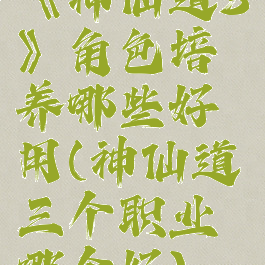 《神仙道3
》角色培
养哪些好
用(神仙道
三个职业
哪个好)